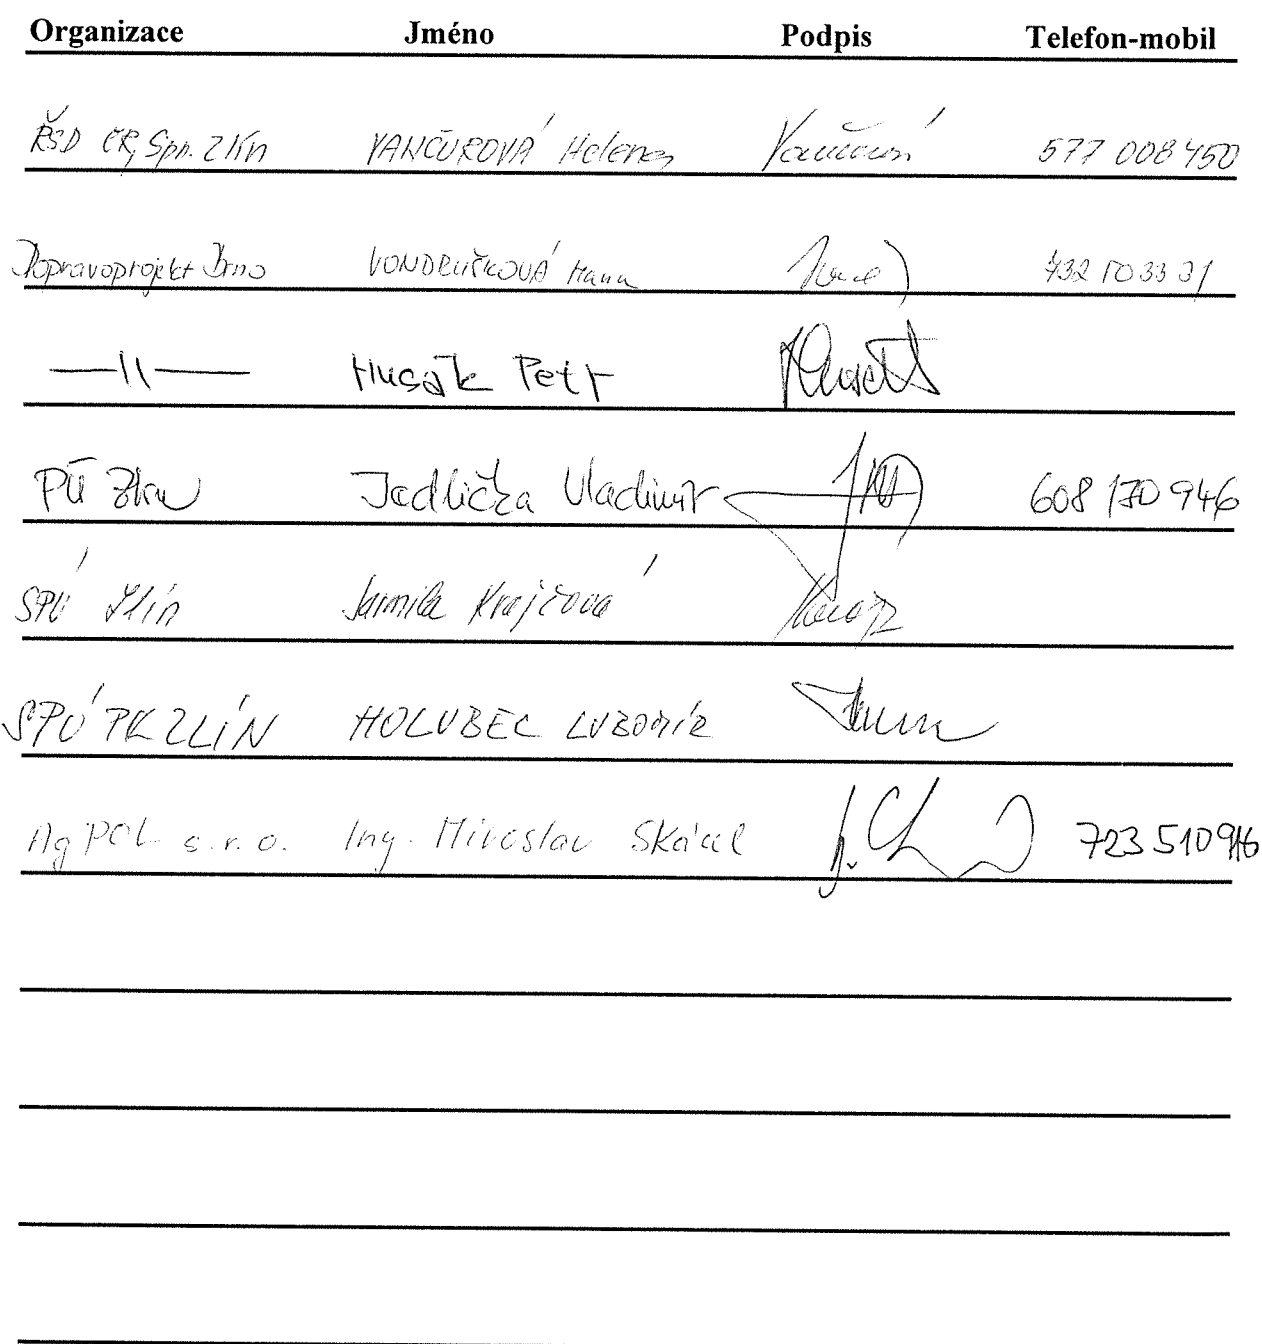 Organizace Jméno Podpis Telefon-mobil
ŘSD ČR, Spr. Zlín VANČUROVÁ Helena 577 008 450
Dopravoprojekt Brno VONDRUŠKOVÁ Hana
—11— Husák Petr
PÚ Zlín Jedlička Vladimír 608 170 946
SPÚ Zlín Jarmila Krajčová
SPÚ PK ZLÍN HOLUBEC LUBOMÍR
AgPOL s.r.o. Ing. Miroslav 723 510 916